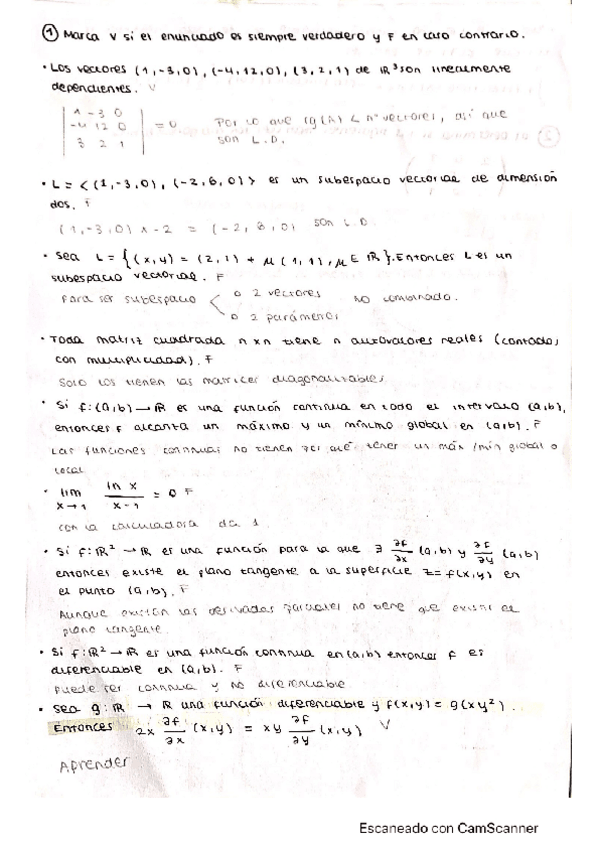 ① Marca V si el enunciado es siempre verdadero y F en caso contrario.
• Los vectores (1,-3,0), (-4,12,0), (3,2,1) de ℝ³ son linealmente
dependientes. V
| 1 -3 0 |
| -4 12 0 | = 0 Por lo que rg(A) < nº vectores, así que
| 3 2 1 | son L.D.
• L = <(1,-3,0), (-2,6,0)> es un subespacio vectorial de dimensión
dos. F
(1,-3,0) x -2 = (-2, 6, 0) son L.D.
• Sea L = {(x,y) = (2,1) + μ(1,1), μ ∈ ℝ}. Entonces L es un
subespacio vectorial. F
Para ser subespacio < o 2 vectores no combinado.
o 2 parámetros
• Toda matriz cuadrada n x n tiene n autovalores reales (contados
con multiplicidad). F
Solo los tienen las matrices diagonalizables
• Si f: (a,b) → ℝ es una función continua en todo el intervalo (a,b),
entonces f alcanza un máximo y un mínimo global en (a,b). F
Las funciones continuas no tienen por qué tener un máx/mín global o
local
• lim x→1 ln x / x-1 = 0 F
con la calculadora da 1
• Si f: ℝ² → ℝ es una función para la que ∃ ∂f/∂x (a,b) y ∂f/∂y (a,b)
entonces existe el plano tangente a la superficie z = f(x,y) en
el punto (a,b). F
Aunque existan las derivadas parciales no tiene que existir el
plano tangente.
• Si f: ℝ² → ℝ es una función continua en (a,b) entonces f es
diferenciable en (a,b). F
Puede ser continua y no diferenciable
• Sea g: ℝ → ℝ una función diferenciable y f(x,y) = g(xy²).
Entonces 2x ∂f/∂x (x,y) = xy ∂f/∂y (x,y) V
Aprender
Escaneado con CamScanner